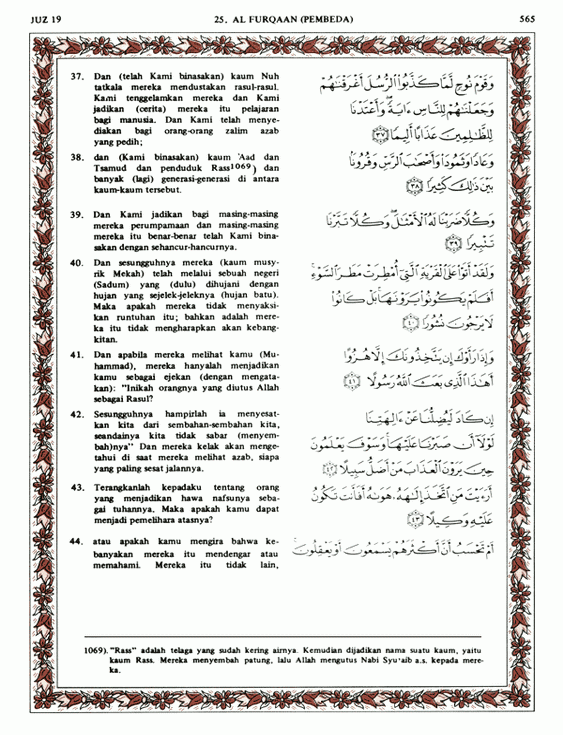 JUZ 19 25. AL FURQAAN (PEMBEDA) 565
37. Dan (telah Kami binasakan) kaum Nuh
tatkala mereka mendustakan rasul-rasul.
Kami tenggelamkan mereka dan Kami
jadikan (cerita) mereka itu pelajaran
bagi manusia. Dan Kami telah menye-
diakan bagi orang-orang zalim azab
yang pedih;
وَقَوْمَ نُوحٍ لَّمَّا كَذَّبُوا۟ الرُّسُلَ أَغْرَقْنَٰهُمْ
وَجَعَلْنَٰهُمْ لِلنَّاسِ ءَايَةً وَأَعْتَدْنَا
لِلظَّٰلِمِينَ عَذَابًا أَلِيمًا ﴿٣٧﴾
38. dan (Kami binasakan) kaum 'Aad dan
Tsamud dan penduduk Rass1069) dan
banyak (lagi) generasi-generasi di antara
kaum-kaum tersebut.
وَعَادًا وَثَمُودَا۟ وَأَصْحَٰبَ الرَّسِّ وَقُرُونًۢا
بَيْنَ ذَٰلِكَ كَثِيرًا ﴿٣٨﴾
39. Dan Kami jadikan bagi masing-masing
mereka perumpamaan dan masing-masing
mereka itu benar-benar telah Kami bina-
sakan dengan sehancur-hancurnya.
وَكُلًّا ضَرَبْنَا لَهُ الْأَمْثَٰلَ وَكُلًّا تَبَّرْنَا
تَتْبِيرًا ﴿٣٩﴾
40. Dan sesungguhnya mereka (kaum musy-
rik Mekah) telah melalui sebuah negeri
(Sadum) yang (dulu) dihujani dengan
hujan yang sejelek-jeleknya (hujan batu).
Maka apakah mereka tidak menyaksi-
kan runtuhan itu; bahkan adalah mere-
ka itu tidak mengharapkan akan kebang-
kitan.
وَلَقَدْ أَتَوْا۟ عَلَى الْقَرْيَةِ الَّتِىٓ أُمْطِرَتْ مَطَرَ السَّوْءِ
أَفَلَمْ يَكُونُوا۟ يَرَوْنَهَا بَلْ كَانُوا۟
لَا يَرْجُونَ نُشُورًا ﴿٤٠﴾
41. Dan apabila mereka melihat kamu (Mu-
hammad), mereka hanyalah menjadikan
kamu sebagai ejekan (dengan mengata-
kan): "Inikah orangnya yang diutus Allah
sebagai Rasul?
وَإِذَا رَأَوْكَ إِن يَتَّخِذُونَكَ إِلَّا هُزُوًا
أَهَٰذَا الَّذِى بَعَثَ اللَّهُ رَسُولًا ﴿٤١﴾
42. Sesungguhnya hampirlah ia menyesat-
kan kita dari sembahan-sembahan kita,
seandainya kita tidak sabar (menyem-
bah)nya" Dan mereka kelak akan menge-
tahui di saat mereka melihat azab, siapa
yang paling sesat jalannya.
إِن كَادَ لَيُضِلُّنَا عَنْ ءَالِهَتِنَا
لَوْلَآ أَن صَبَرْنَا عَلَيْهَا وَسَوْفَ يَعْلَمُونَ
حِينَ يَرَوْنَ الْعَذَابَ مَنْ أَضَلُّ سَبِيلًا ﴿٤٢﴾
43. Terangkanlah kepadaku tentang orang
yang menjadikan hawa nafsunya seba-
gai tuhannya. Maka apakah kamu dapat
menjadi pemelihara atasnya?
أَرَءَيْتَ مَنِ اتَّخَذَ إِلَٰهَهُۥ هَوَىٰهُ أَفَأَنتَ تَكُونُ
عَلَيْهِ وَكِيلًا ﴿٤٣﴾
44. atau apakah kamu mengira bahwa ke-
banyakan mereka itu mendengar atau
memahami. Mereka itu tidak lain,
أَمْ تَحْسَبُ أَنَّ أَكْثَرَهُمْ يَسْمَعُونَ أَوْ يَعْقِلُونَ
1069). "Rass" adalah telaga yang sudah kering airnya. Kemudian dijadikan nama suatu kaum, yaitu
kaum Rass. Mereka menyembah patung, lalu Allah mengutus Nabi Syu'aib a.s. kepada mere-
ka.